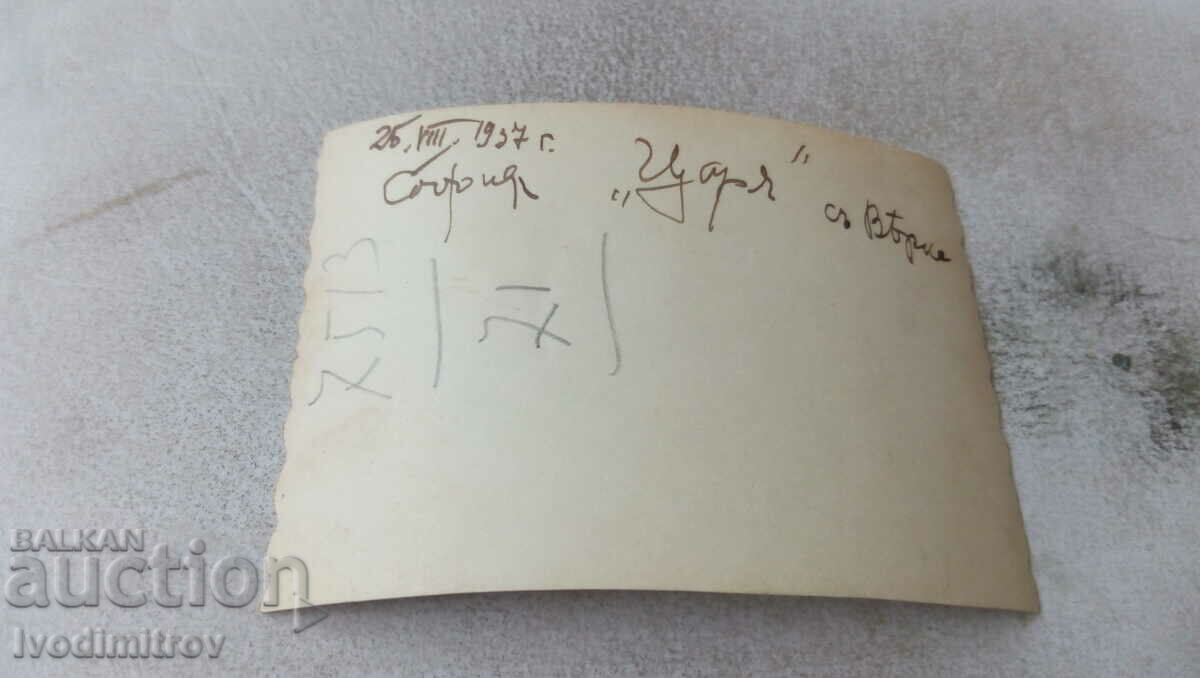 26. VIII. 1937 г.
София
„Царя"
съ Вѣрка
BALKAN
auction
Ivodimitrov